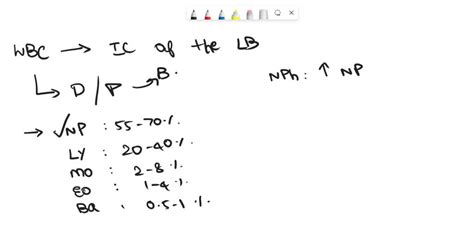 WBC → IC of the LB
↳ D / P → B.
NPh: ↑ NP
→ ✓NP : 55-70%.
LY : 20-40%.
MO : 2-8%.
EO : 1-4%.
Ba : 0.5-1%.